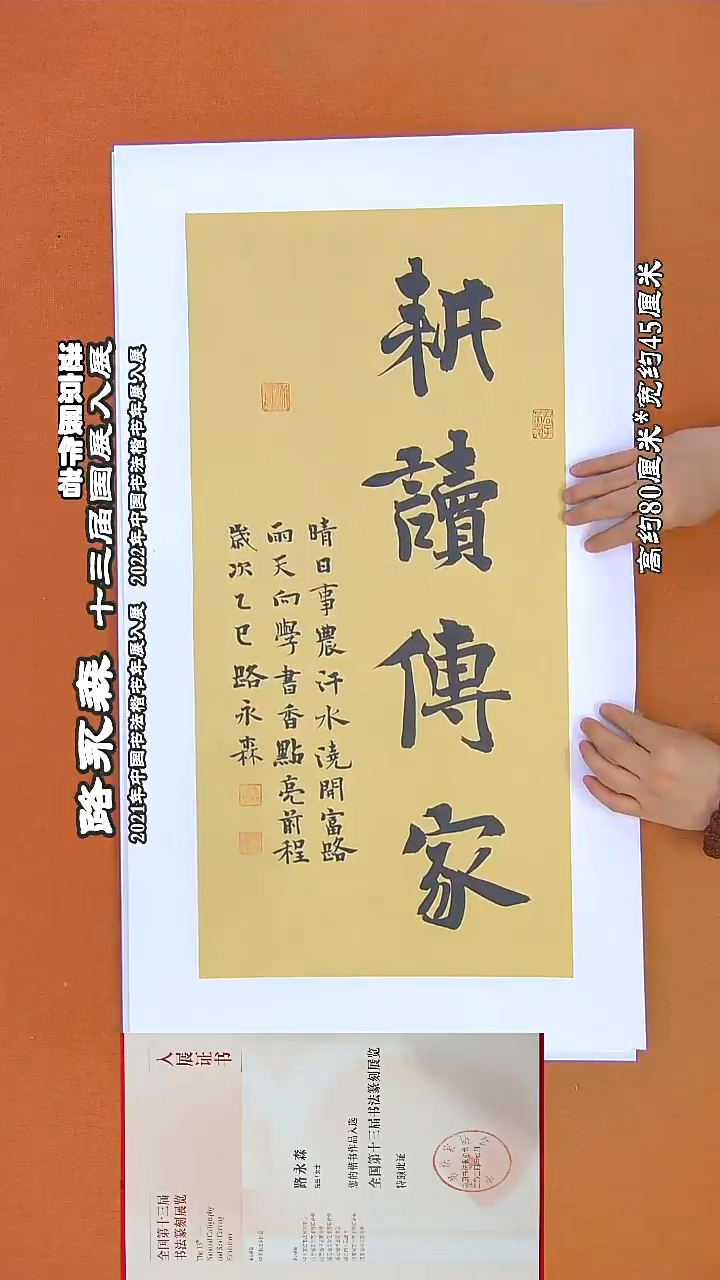 耕讀傳家
晴日事農汗水澆開富路
雨天向學書香點亮前程
歲次乙巳路永森
路永森
十三届国展入展
2021年中国书法楷书年展入展
2022年中国书法楷书年展入展
高约80厘米*宽约45厘米
入展证书
全国第十三届
书法篆刻展览
The 13th
National Calligraphy
and Seal Carving
Exhibition
路永森
您的楷书作品入选
全国第十三届书法篆刻展览
特颁此证